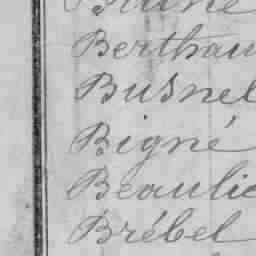 Berthau
Busnel
Bigné
Beaulie
Brébel